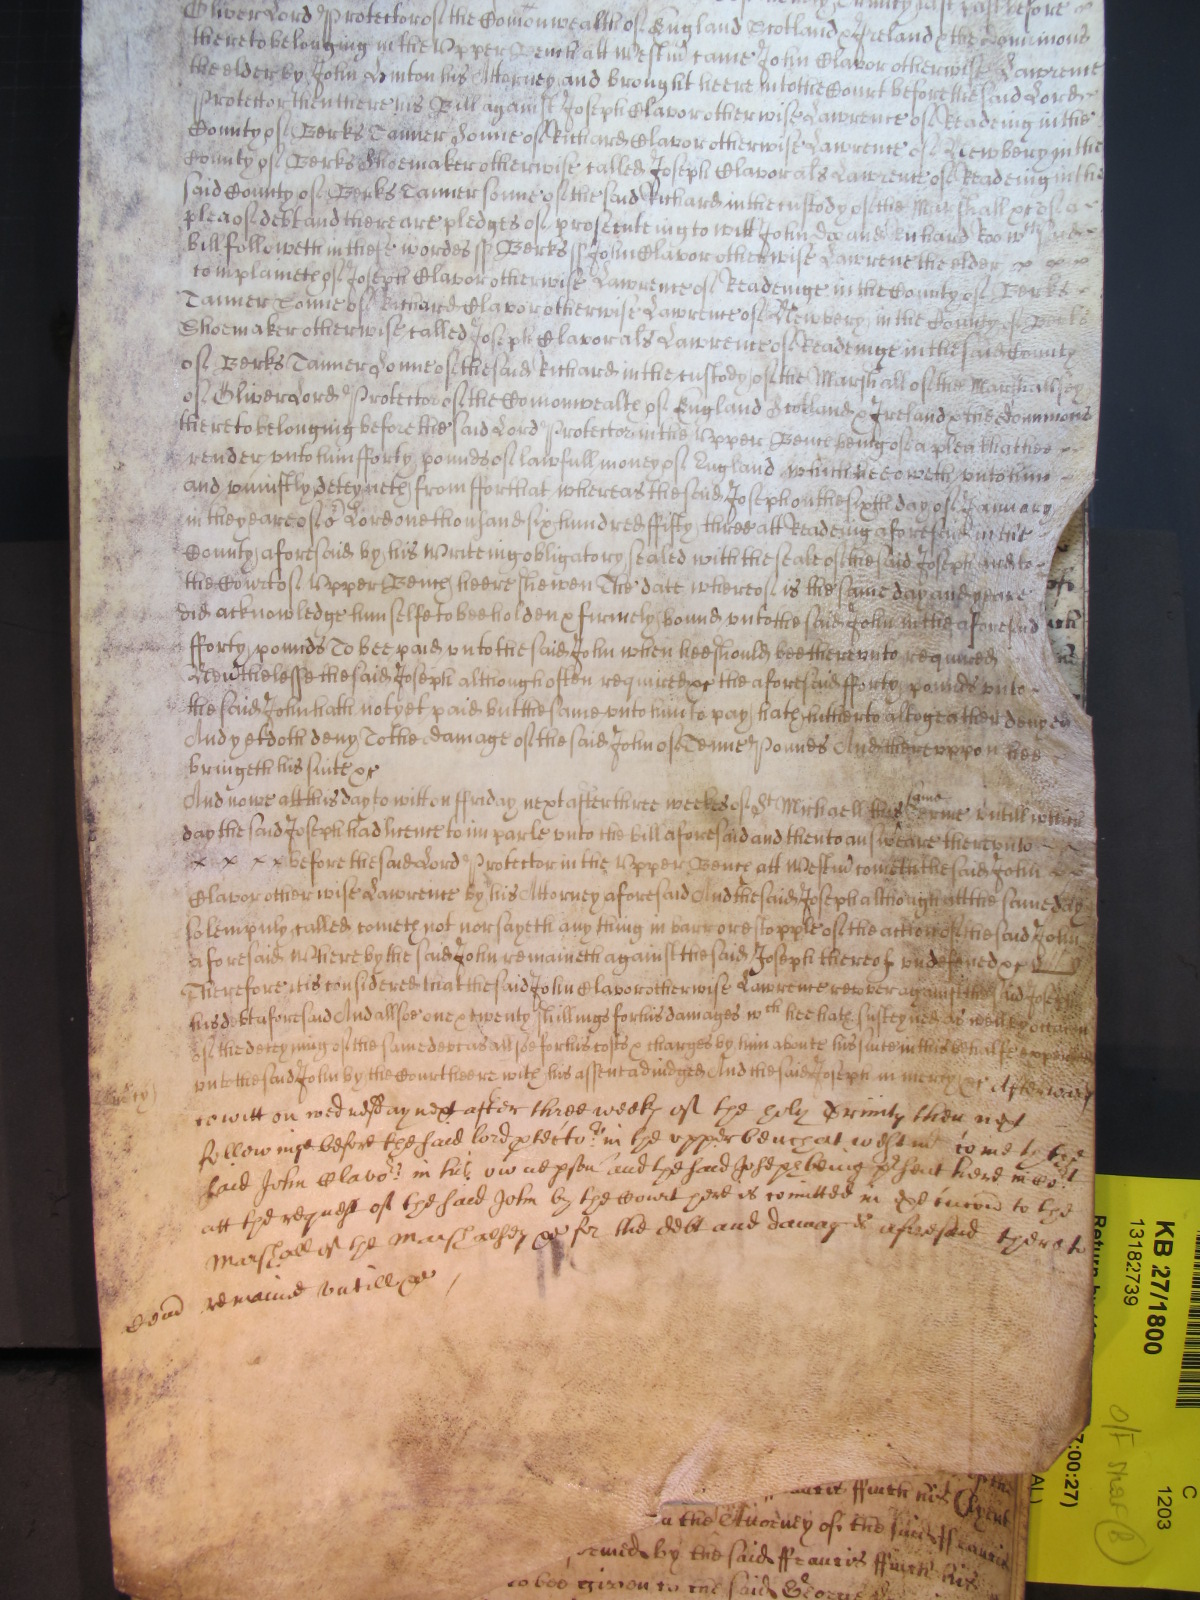 Oliver Lord Protector of the Comonwealth of England Scotland & Ireland & the Dominions
thereto belonging in the Upper Bench att Westm came John Clavor otherwise Lawrence
the elder by John Linton his Attorney and brought heere into the Court before the said Lord
Protector then there his Bill against Joseph Clavor otherwise Lawrence of Readeing in the
County of Berks Tanner Sonne of Richard Clavor otherwise Lawrence of Newbery in the
County of Berks Shoemaker otherwise called Joseph Clavor als Lawrence of Readeing in the
said County of Berks Tanner sonne of the said Richard in the custody of the Marshall &c of a
plea of debt and there are pledges of prosecuteing to witt John Doe and Richard Roo wch said
bill followeth in these wordes ss Berks ss John Clavor otherwise Lawrence the elder x x x
complaineth of Joseph Clavor otherwise Lawrence of Readeinge in the County of Berks
Tanner Sonne of Richard Clavor otherwise Lawrence of Newbery in the County of Berks
Shoemaker otherwise called Joseph Clavor als Lawrence of Readeinge in the said County
of Berks Tanner Sonne of the said Richard in the custody of the Marshall of the Marshallsey
of Oliver Lord Protector of the Comonwealth of England Scotland & Ireland & the Dominions
thereto belonging before the said Lord Protector in the Upper Bench being of a plea that hee
render unto him fforty pounds of lawfull money of England which hee oweth unto him
and uniustly deteyneth from ffor that whereas the said Joseph on the sixth day of January
in the yeare of or Lord one thousand six hundred ffifty three att Readeing aforesaid in the
County aforesaid by his Writeing obligatory sealed with the seale of the said Joseph and to
the Court of Upper Bench heere shewen The date whereof is the same day and yeare
did acknowledge himselfe to bee holden & firmely bound unto the said John in the aforesaid
fforty pounds To bee paid unto the said John when hee should bee thereunto required
Neverthelesse the said Joseph although often required &c the aforesaid fforty pounds unto
the said John hath not yet paid but the same unto him to pay hath hitherto altogeather denyed
And yet doth deny To the damage of the said John of Tenne Pounds And thereuppon hee
bringeth his suite &c
And nowe att this day to witt on ffriday next after three weekes of St Michaell this same Terme untill which
day the said Joseph had licence to imparle unto the bill aforesaid and then to answeare thereunto
x x x x before the said Lord Protector in the Upper Bench att Westm cometh the said John
Clavor otherwise Lawrence by his Attorney aforesaid And the said Joseph although att the same day
solempnly called cometh not nor sayeth any thing in barr or estopple of the action of the said John
aforesaid Whereby the said John remaineth against the said Joseph thereof undefened &c
Therefore it is considered that the said John Clavor otherwise Lawrence recover against the said Joseph
his debt aforesaid And allsoe one & twenty shillings for his damages wch hee hath susteyned as well by occasion
of the deteyning of the same debt as allsoe for his costs & charges by him aboute his suite in this behalfe expended
unto the said John by the Court heere with his assent adiudged And the said Joseph in mercy &c Afterward
to witt on wednesday next after three weeks of the holy Trinity then next
followinge before the said lord ptector in the upper bench at westm come the
said John Clavor in his owne pson and the said Joseph being psent here in Court
att the request of the said John by the Court here is comitted in execucon to the
Marshall of the Marshalsey &c for the debt and damags aforesaid there to
remaine untill &c
KB 27/1800
13182739
C
1203
7:00:27)
AL)
ffrancis ffinch his
in the Attorney of the said ffrancis
by the said ffrancis ffinch his
to bee given to the said George